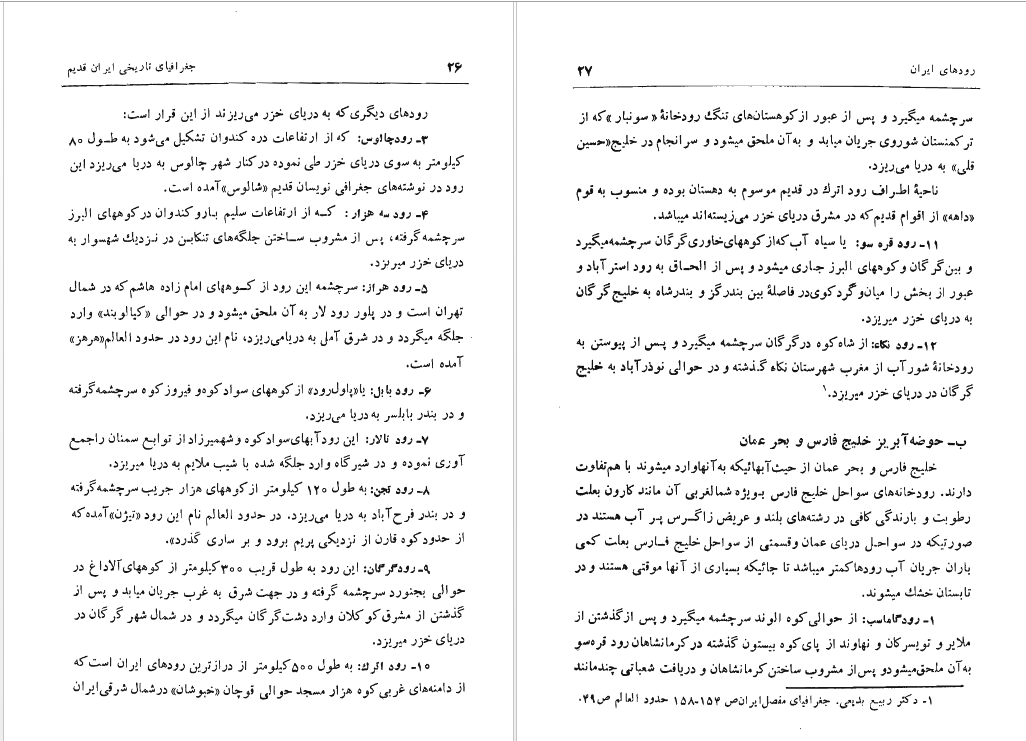 ۲۶
جغرافیای تاریخی ایران قدیم
رودهای دیگری که به دریای خزر می‌ریزند از این قرار است:
۳ـ رودچالوس: که از ارتفاعات دره کندوان تشکیل می‌شود به طول ۸۰
کیلومتر به سوی دریای خزر طی نموده در کنار شهر چالوس به دریا می‌ریزد این
رود در نوشته‌های جغرافی نویسان قدیم «شالوس» آمده است.
۴ـ رود سه هزار: که از ارتفاعات سلیم بارو کندوان در کوههای البرز
سرچشمه گرفته، پس از مشروب ساختن جلگه‌های تنکابن در نزدیک شهسوار به
دریای خزر میریزد.
۵ـ رود هراز: سرچشمه این رود از کوههای امام زاده هاشم که در شمال
تهران است و در پلور رود لار به آن ملحق میشود و در حوالی «کیالوبند» وارد
جلگه میگردد و در شرق آمل به دریا می‌ریزد، نام این رود در حدود العالم «هرهز»
آمده است.
۶ـ رود بابل: یا «پاول رود» از کوههای سواد کوه و فیروز کوه سرچشمه گرفته
و در بندر بابلسر به دریا می‌ریزد.
۷ـ رود تالار: این رود آبهای سواد کوه و شهمیرزاد از توابع سمنان را جمع
آوری نموده و در شیرگاه وارد جلگه شده با شیب ملایم به دریا میریزد.
۸ـ رود تجن: به طول ۱۲۰ کیلومتر از کوههای هزار جریب سرچشمه گرفته
و در بندر فرح آباد به دریا می‌ریزد. در حدود العالم نام این رود «تیژن» آمده که
از حدود کوه قارن از نزدیکی پریم برود و بر ساری گذرد».
۹ـ رود گرگان: این رود به طول قریب ۳۰۰ کیلومتر از کوههای آلاداغ در
حوالی بجنورد سرچشمه گرفته و در جهت شرق به غرب جریان میابد و پس از
گذشتن از مشرق کو کلان وارد دشت گرگان میگردد و در شمال شهر گرگان در
دریای خزر میریزد.
۱۰ـ رود اترک: به طول ۵۰۰ کیلومتر از درازترین رودهای ایران است که
از دامنه‌های غربی کوه هزار مسجد حوالی قوچان «خبوشان» در شمال شرقی ایران
رودهای ایران
۲۷
سرچشمه میگیرد و پس از عبور از کوهستان‌های تنگ رودخانهٔ «سونبار» که از
ترکمنستان شوروی جریان میابد و به آن ملحق میشود و سرانجام در خلیج «حسین
قلی» به دریا می‌ریزد.
ناحیهٔ اطراف رود اترک در قدیم موسوم به دهستان بوده و منسوب به قوم
«داهه» از اقوام قدیم که در مشرق دریای خزر می‌زیسته‌اند میباشد.
۱۱ـ رود قره سو: یا سیاه آب که از کوههای خاوری گرگان سرچشمه میگیرد
و بین گرگان و کوههای البرز جاری میشود و پس از الحاق به رود استر آباد و
عبور از بخش را میان و گرد کوی در فاصلهٔ بین بندرگز و بندرشاه به خلیج گرگان
به دریای خزر میریزد.
۱۲ـ رود نکاء: از شاه کوه در گرگان سرچشمه میگیرد و پس از پیوستن به
رودخانهٔ شور آب از مغرب شهرستان نکاء گذشته و در حوالی نوذر آباد به خلیج
گرگان در دریای خزر میریزد.۱
ب ـ حوضه آبریز خلیج فارس و بحر عمان
خلیج فارس و بحر عمان از حیث آبهائیکه به آنها وارد میشوند با هم تفاوت
دارند. رودخانه‌های سواحل خلیج فارس بویژه شمالغربی آن مانند کارون بعلت
رطوبت و بارندگی کافی در رشته‌های بلند و عریض زاگرس پر آب هستند در
صورتیکه در سواحل دریای عمان و قسمتی از سواحل خلیج فارس بعلت کمی
باران جریان آب رودها کمتر میباشد تا جائیکه بسیاری از آنها موقتی هستند و در
تابستان خشک میشوند.
۱ـ رود گاماسب: از حوالی کوه الوند سرچشمه میگیرد و پس از گذشتن از
ملایر و تویسرکان و نهاوند از پای کوه بیستون گذشته در کرمانشاهان رود قره‌سو
به آن ملحق میشود و پس از مشروب ساختن کرمانشاهان و دریافت شعباتی چند مانند
۱ـ دکتر ربیع بدیعی. جغرافیای مفصل ایران ص ۱۵۴ـ۱۵۸ حدود العالم ص ۴۹.